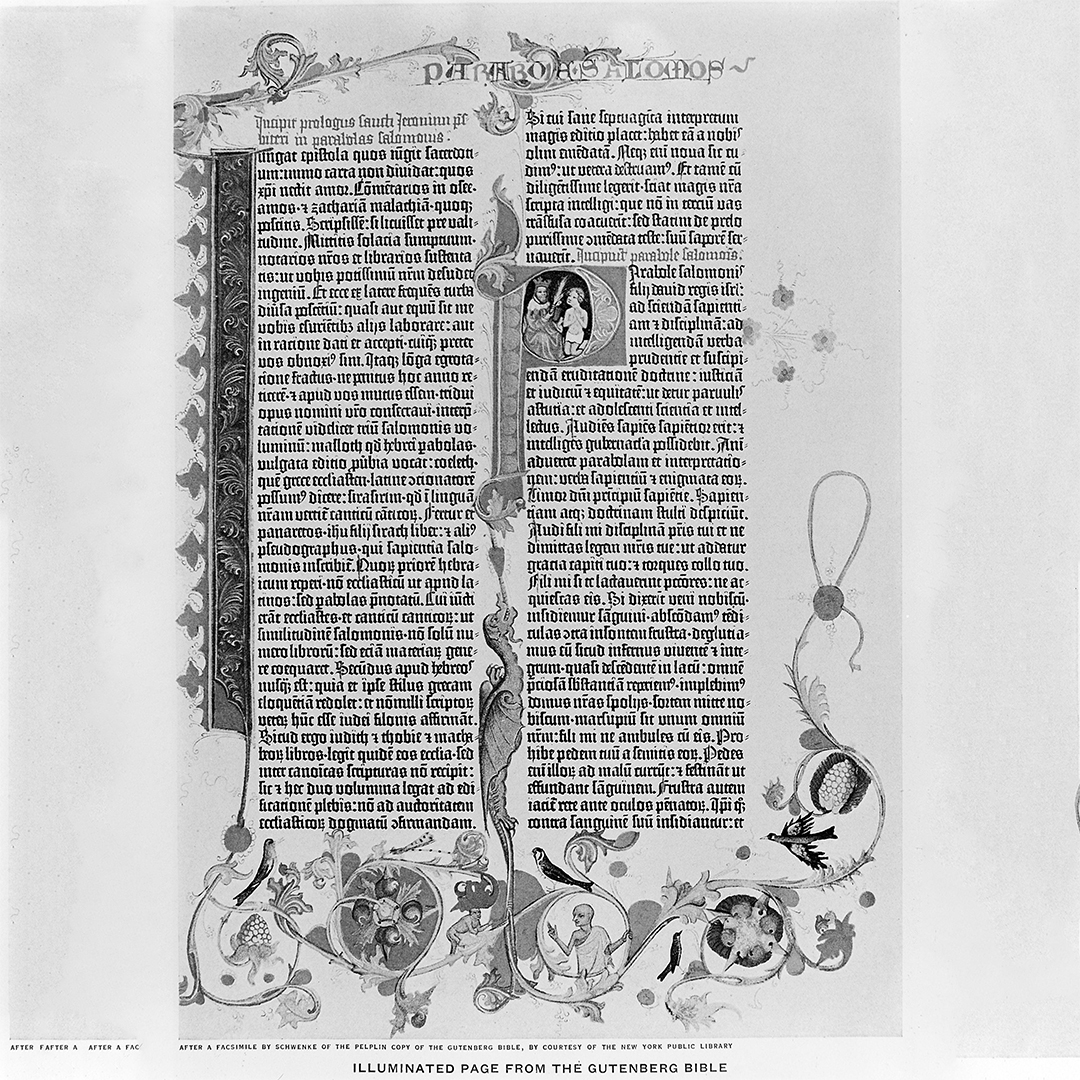 PARABOLE·SALOMOS
Incipit prologus sancti Jeronimi pr̄
biteri in parabolas salomonis.
Iungat epistola quos iūgit sacerdoti-
um: immo carta non diuidat: quos
xp̄i nectit amor. Cōmētarios in osee·
amos·⁊ zachariā malachiā·quoqꝫ
poscitis. Scripsissē: si licuisset pre vali-
tudine. Mittitis solacia sumptuum·
notarios nr̄os et librarios sustenta-
tis: ut vobis potissimū nr̄m desudet
ingeniū. Et ecce ex latere frequēs turba
diūsa poscētiū: quasi aut equū sit me
vobis esurientibꝫ alijs laborare: aut
in racione dati et accepti·cuiqꝫ preter
vos obnoxiꝰ sim. Itaqꝫ lōga egrota-
tione fractus·ne penitus hoc anno re-
ticerē·⁊ apud vos mutus essem·tridui
opus nomini vr̄o consecraui·interp̄-
tationē videlicet triū salomonis vo-
luminū: masloth qd̄ hebrei p̄abolas·
vulgata editio p̄ūbia vocat: coeleth·
quē grece ecclīasten·latine ↄcionatorē
possumꝰ dicere: sirasirim·qd̄ ī linguā
nr̄am vertit᷑ canticū cāticoꝝ. Fertur et
panaretos·ihu filij sirach liber: ⁊ aliꝰ
pseudographus·qui sapientia salo-
monis inscribit᷑. Quoꝝ priorē hebra-
icum reperi·nō ecclīasticū ut apud la-
tinos: sed p̄abolas p̄notatū. Cui iūcti
erāt ecclīastes·et canticū canticoꝝ: ut
similitudinē salomonis·nō solū nu-
mero librorū: sed eciā materiaꝝ gene-
re coequaret. Secūdus apud hebreoˢ
nusqꝫ est: quia et ipse stilus grecam
eloquētiā redolet: et nōnulli scriptoꝝ
veteꝝ hūc esse iudei filonis affirmāt.
Sicud ergo iudith ⁊ thobie ⁊ macha-
beoꝝ libros·legit quidē eos eccl̄ia·sed
inter canoīcas scripturas nō recipit:
sic ⁊ hec duo volumina legat ad edi-
ficationē plebis: nō ad auctoritatem
ecclīasticoꝝ dogmatū ↄfirmandam.
Si cui sane septuagīta interpretum
magis editio placet: habet eā a nobiˢ
olim emēdatā. Neqꝫ eni᷑ noua sic cu-
dimꝰ: ut vetera destruamꝰ. Et tamē cū
diligētissime legerit·sciat magis nr̄a
scripta intelligi: que nō in terciū vas
trāsfusa coacuerīt: sed statim de prelo
purissime ↄmēdata teste: suū saporē ser-
nauerīt. Incipiūt parabole salomoīs.
Parabole salomoniˢ
filij dauid regis isrl̄:
ad sciendā sapienti-
am ⁊ disciplinā: ad
intelligendā verba
prudentie et suscipi-
endā eruditationē doctrine: iusticiā
et iudiciū ⁊ equitatē: ut detur paruuliˢ
astutia: et adolescenti sciencia et intel-
lectus. Audiēs sapiēs sapiētior erit: ⁊
intelligēs gubernacl̄a possidebit. Ani-
aduertet parabolam et interpretatio-
nem: verba sapientiū ⁊ enigmata eoꝝ.
Timor dn̄i prīcipiū sapiētie. Sapien-
tiam atqꝫ doctrinam stulti despiciūt.
Audi fili mi disciplinā pr̄is tui et ne
dimittas legem mr̄is tue: ut addatur
gracia capiti tuo: ⁊ torques collo tuo.
Fili mi si te lactauerint pctōres: ne ac-
quiescas eis. Si dixerīt veni nobiscū·
insidiemur sāguini·abscōdamꝰ tēdi-
culas ↄtra insontem frustra·deglutia-
mus eū sicud infernus viuentē ⁊ inte-
grum·quasi descēdentē in lacū: omnē
p̄ciosā sb̄stanciā reperiemꝰ·implebimꝰ
domus nr̄as spolijs·sortem mitte no-
biscum·marsupiū sit unum omniū
nr̄m: fili mi ne ambules cū eis. Pro-
hibe pedem tuū a semitis eoꝝ. Pedes
eni᷑ illoꝝ ad malū currūt: ⁊ festināt ut
effundant sāguinem. Frustra autem
iacit᷑ rete ante oculos pēnatoꝝ. Ip̄i qꝫ
contra sanguinē suū insidiantur: et
AFTER FAFTER A   AFTER A FAC
AFTER A FACSIMILE BY SCHWENKE OF THE PELPLIN COPY OF THE GUTENBERG BIBLE, BY COURTESY OF THE NEW YORK PUBLIC LIBRARY
ILLUMINATED PAGE FROM THE GUTENBERG BIBLE